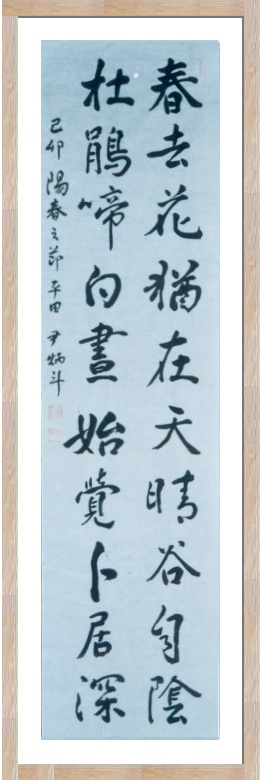 春去花猶在天晴谷自陰
杜鵑啼白晝始覺卜居深
己卯陽春之節平田尹炳斗